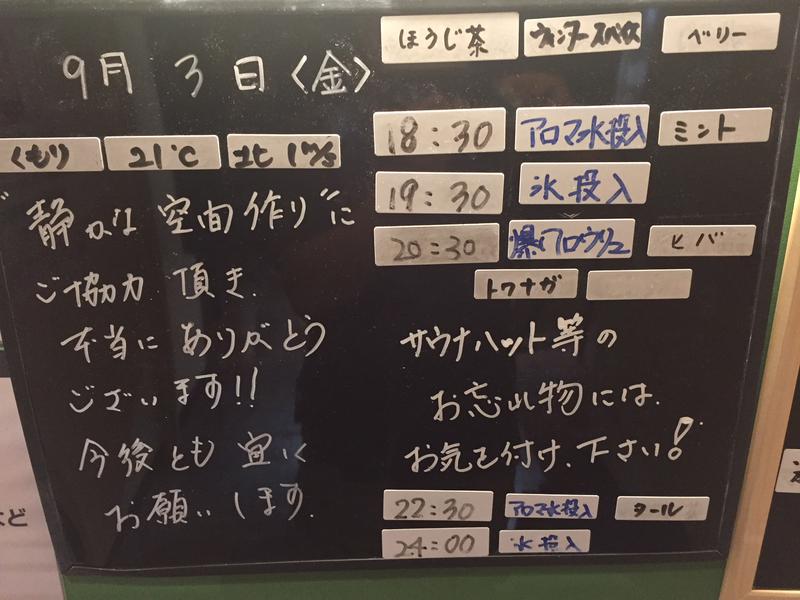 9月 3日〈金〉
くもり 21℃ 北 1m/s
"静かな 空間作り"に
ご協力 頂き、
本当に ありがとう
ございます!!
今後とも 宜しく
お願いします。
ほうじ茶 ウィンタースパイス ベリー
18:30 アロマ水投入 ミント
19:30 氷投入
20:30 爆アロウリュ ヒバ
トワナガ
サウナハット等の
お忘れ物には、
お気を付け、下さい!
22:30 アロマ水投入 タール
24:00 氷投入